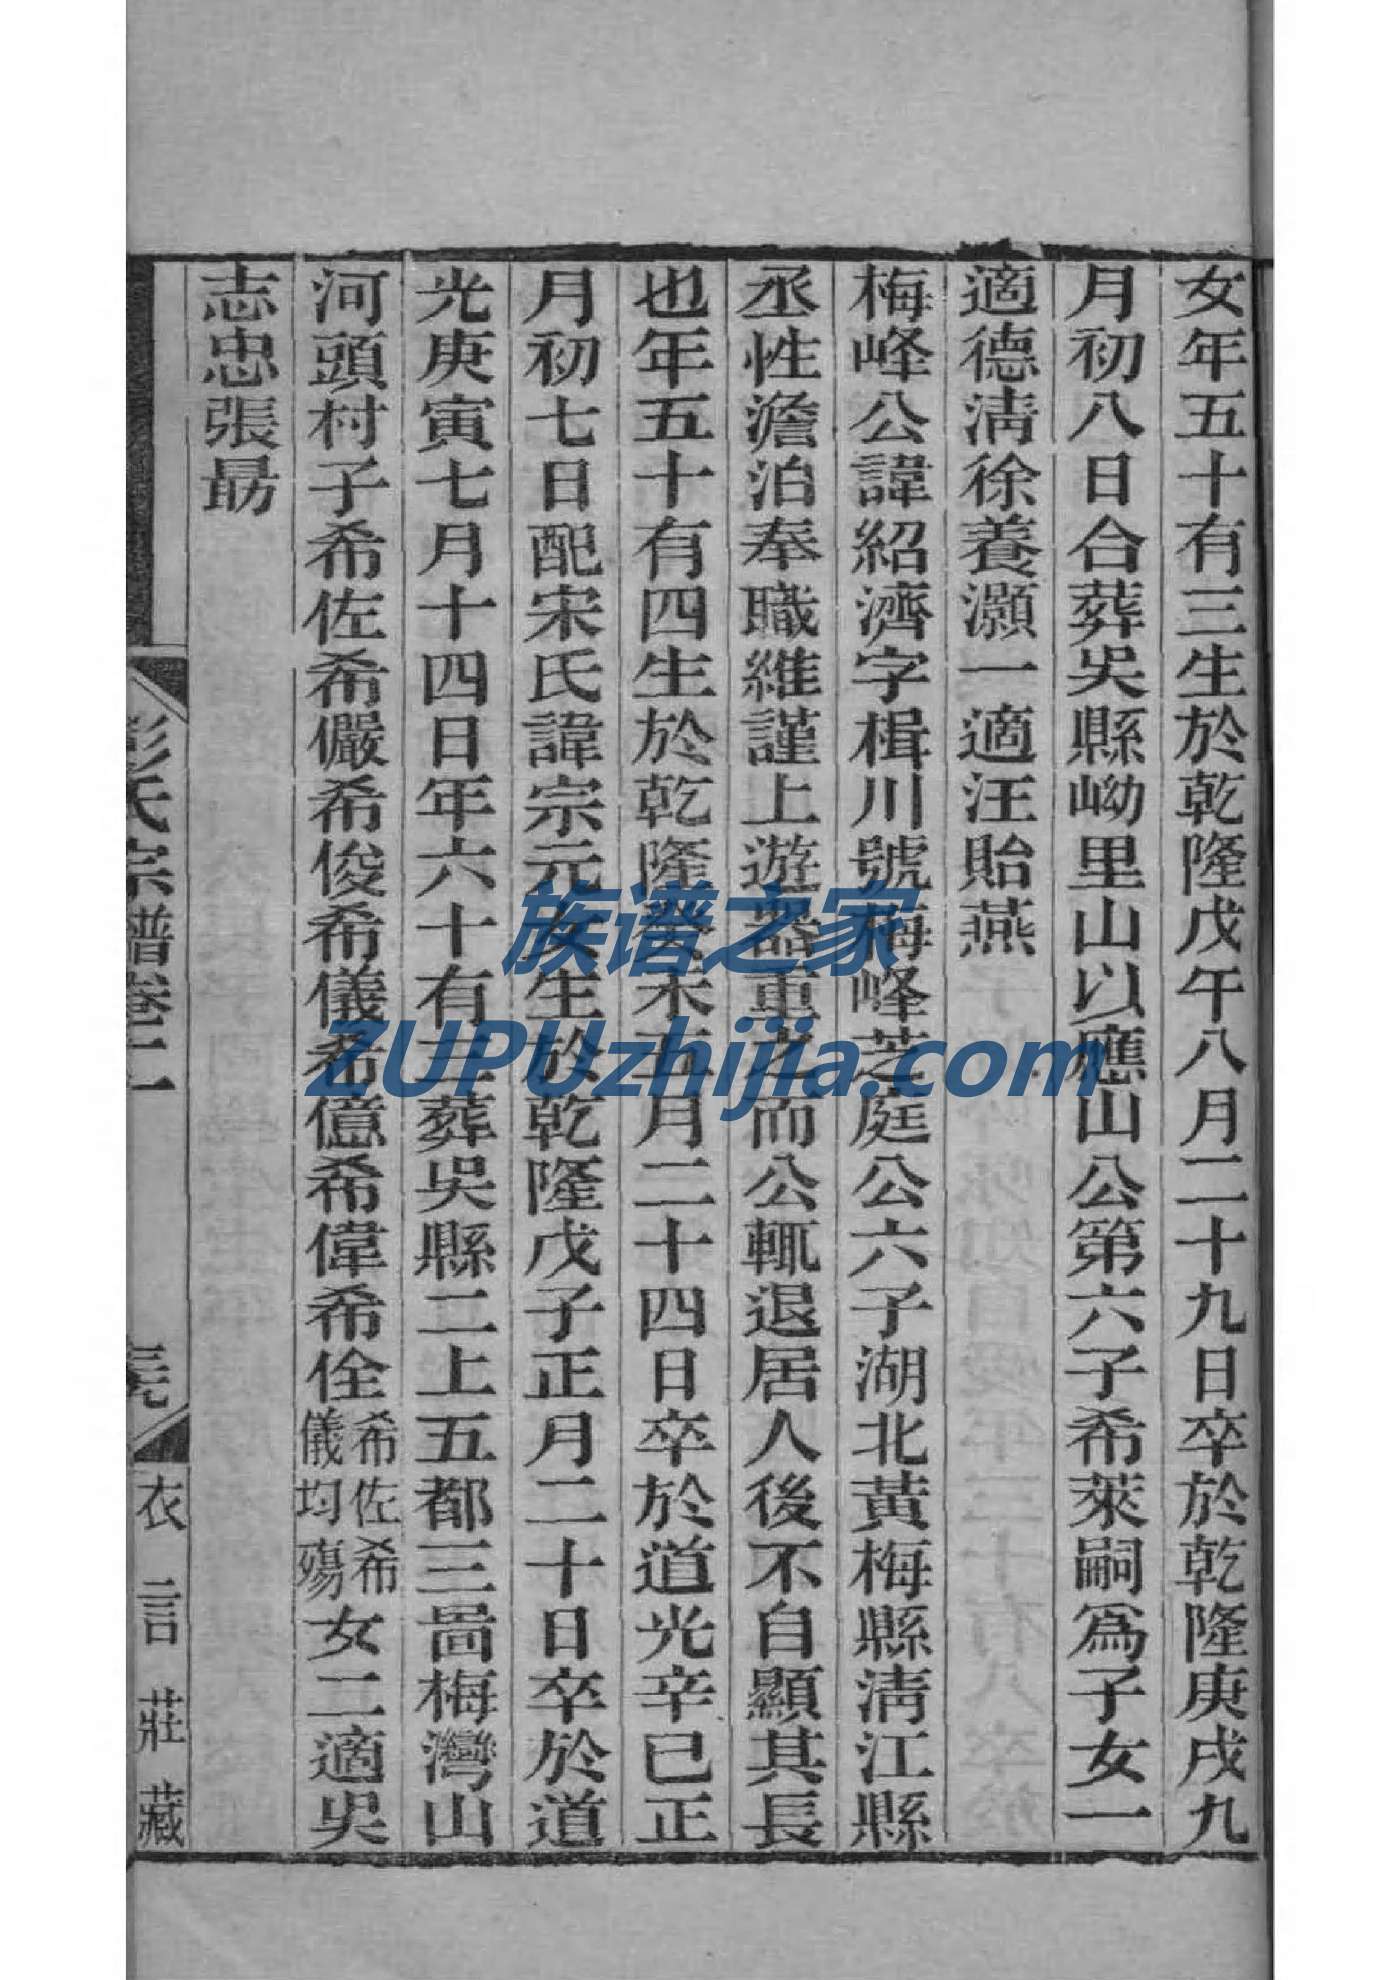 女年五十有三生於乾隆戊午八月二十九日卒於乾隆庚戌九
月初八日合葬吳縣㘭里山以應山公第六子希萊嗣爲子女一
適德清徐養灝一適汪貽燕
梅峰公諱紹濟字楫川號梅峰芝庭公六子湖北黃梅縣清江縣
丞性澹泊奉職維謹上遊器重之而公輒退居人後不自顯其長
也年五十有四生於乾隆癸未五月二十四日卒於道光辛巳正
月初七日配宋氏諱宗元女生於乾隆戊子正月二十日卒於道
光庚寅七月十四日年六十有三葬吳縣二上五都三啚梅灣山
河頭村子希佐希儼希俊希儀希億希偉希佺希佐希儀均殤女二適吳
志忠張勗
彭氏宗譜卷二
衣言莊藏
族谱之家
ZUPUzhijia.com